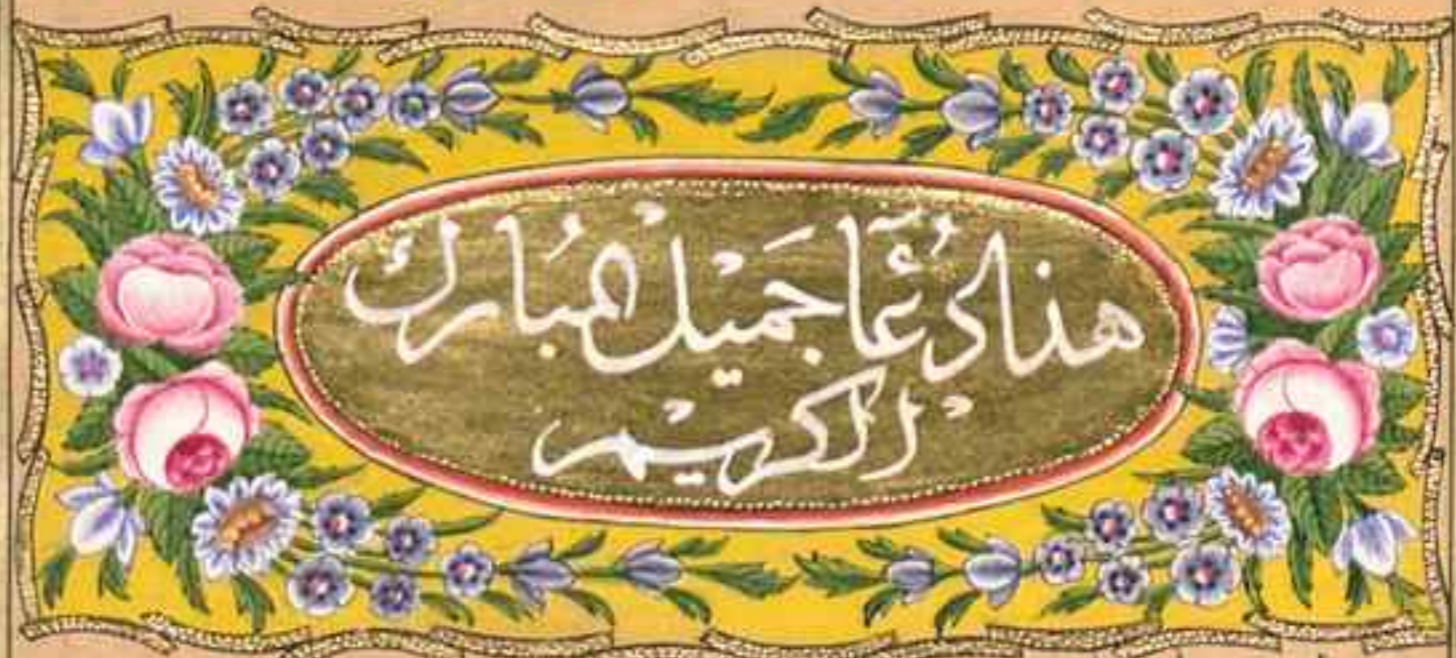 هذا دُعَآ جَمِيل المُبارك
الكريم